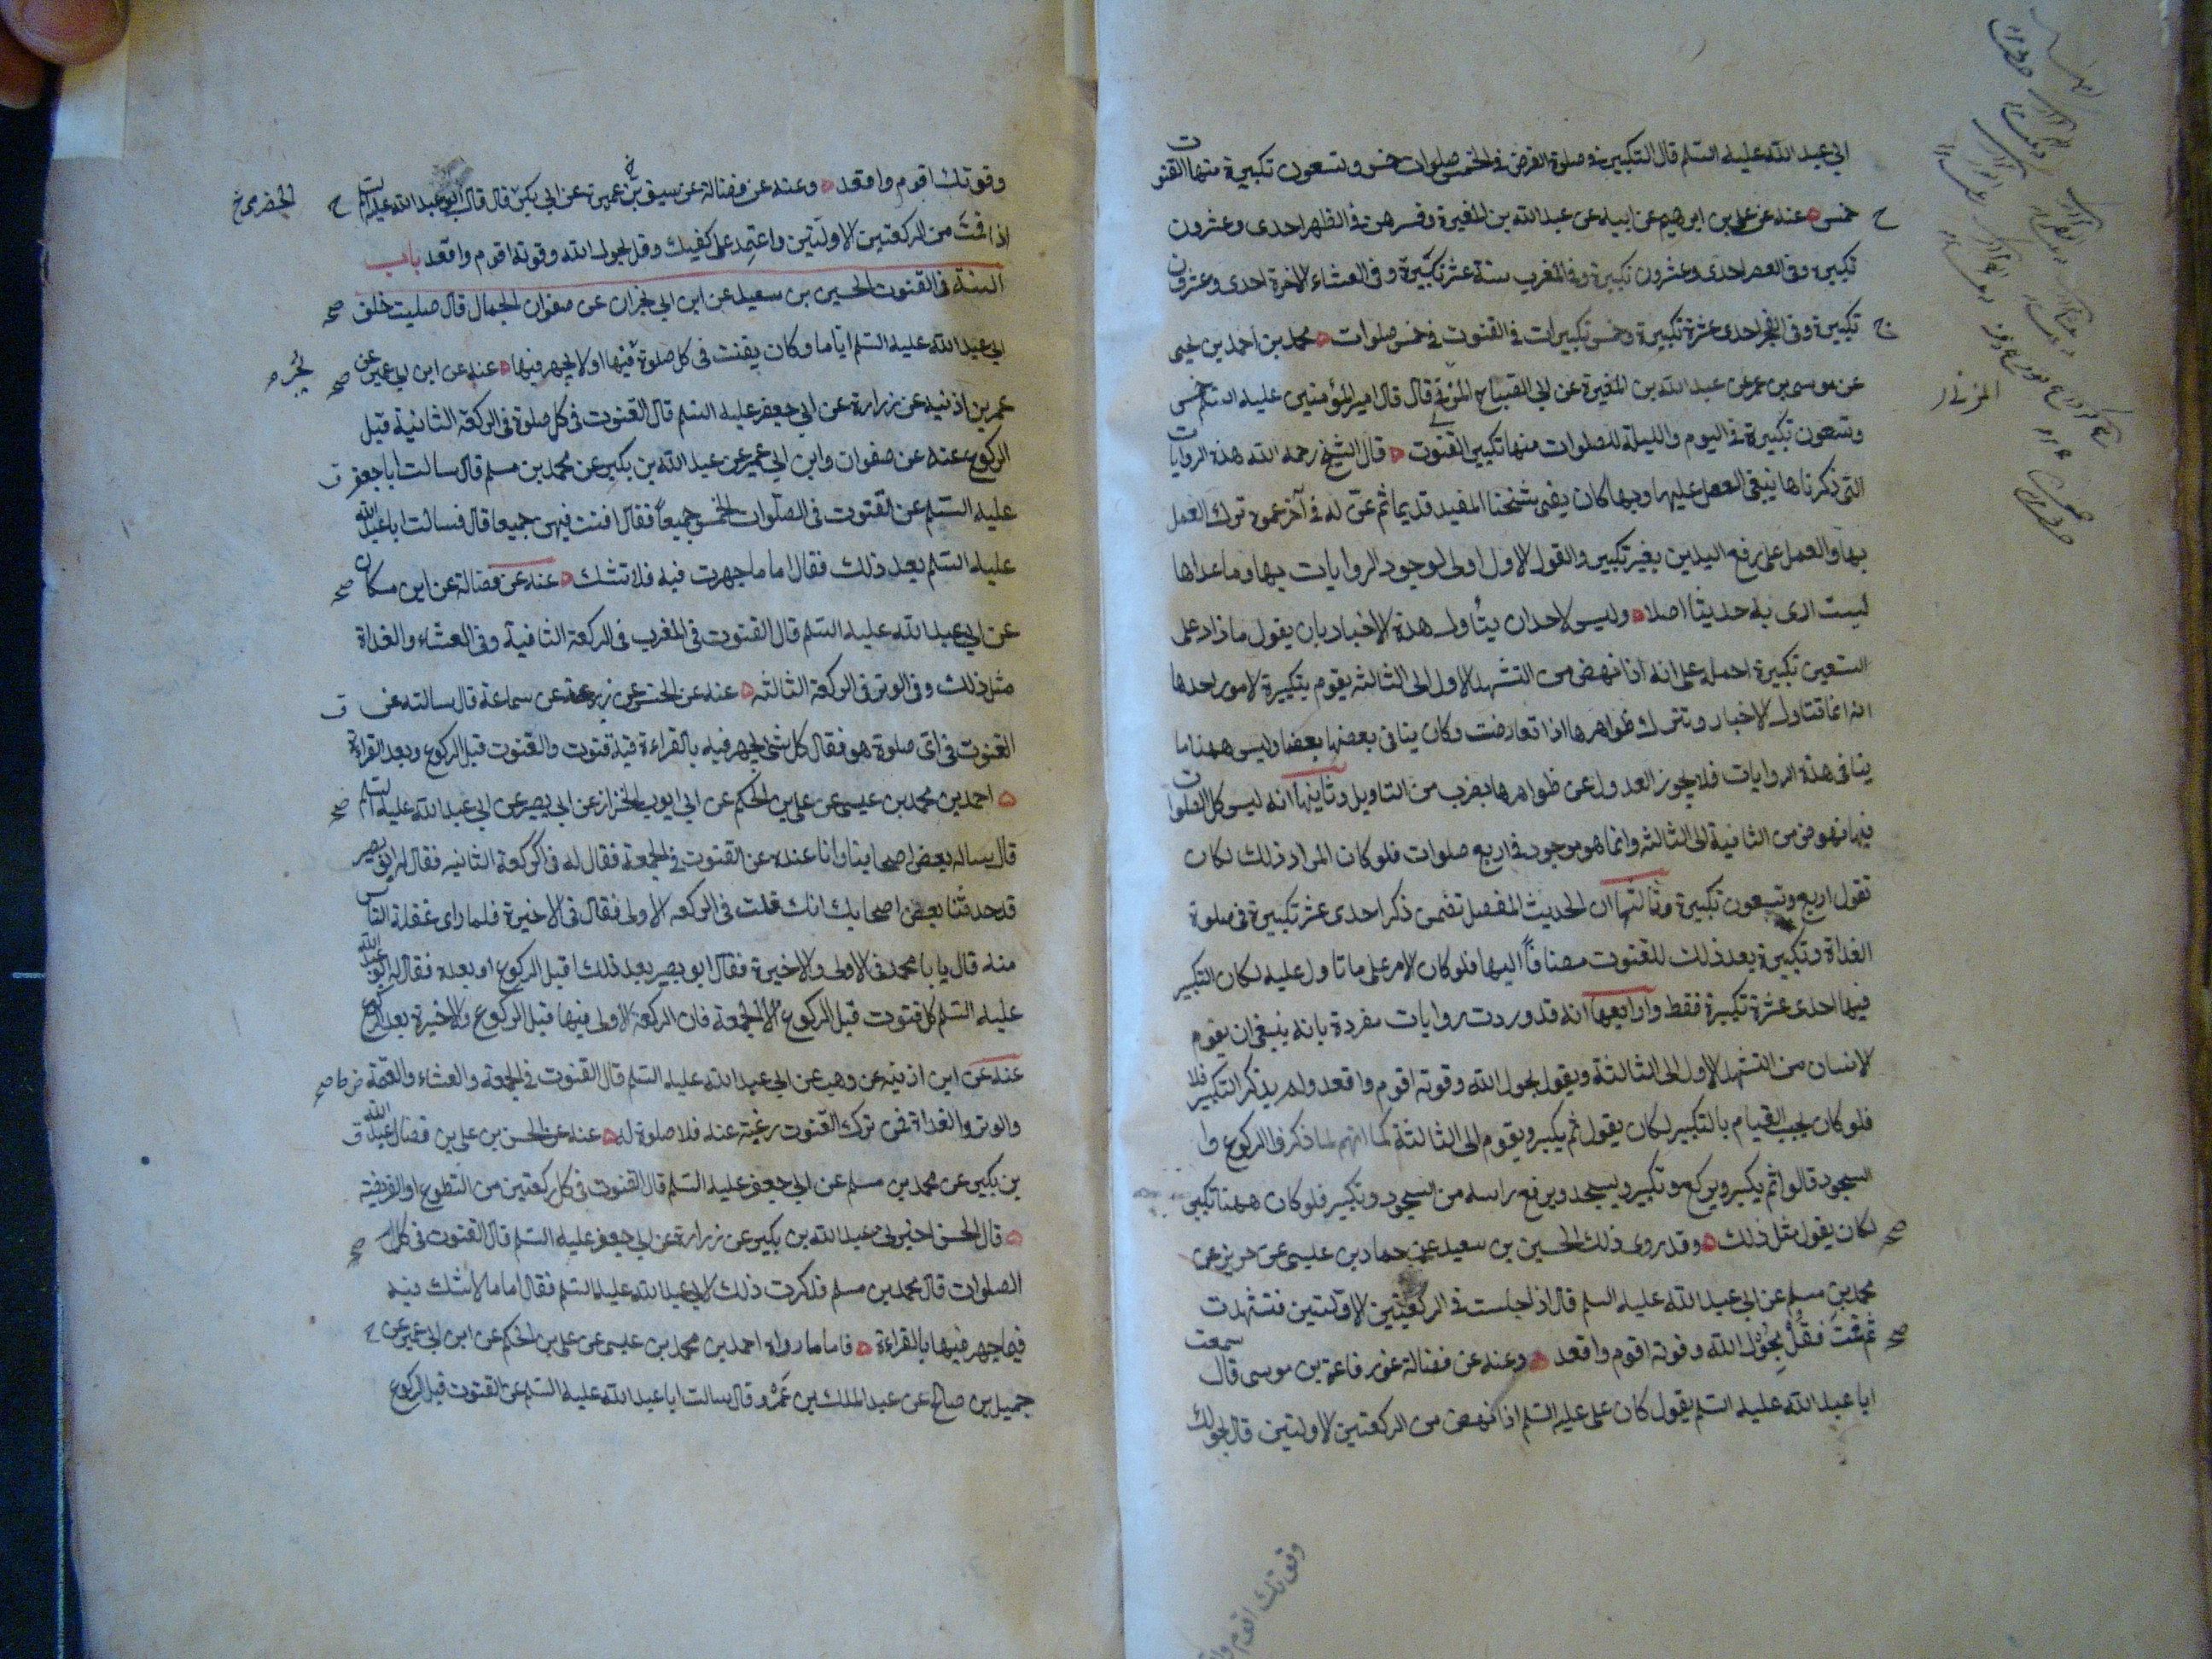 ابي عبد الله عليه السلم قال التكبير في صلوة الفرض في الخمس صلوات خمس وتسعون تكبيرة منها القنوت
خمس عنه عن علي بن ابرهيم عن ابيه عن عبد الله بن المغيرة وفسرهن في الظهر احدى وعشرون
تكبيرة وفي العصر احدى وعشرون تكبيرة وفي المغرب ستة عشر تكبيرة وفي العشاء الاخرة احدى وعشرون
تكبيرة وفي الفجر احدى عشرة تكبيرة وخمس تكبيرات في القنوت في خمس صلوات محمد بن احمد بن يحيى
عن موسى بن عمر عن عبد الله بن المغيرة عن ابي الصباح المزني قال قال امير المؤمنين عليه السلم خمس
وتسعون تكبيرة في اليوم والليلة للصلوات منها تكبير القنوت قال الشيخ رحمه الله هذه الروايات
التي ذكرناها ينبغي العمل عليها وبها كان يفتي شيخنا المفيد قديما ثم عن له في آخر عمره ترك العمل
بها والعمل على رفع اليدين بغير تكبير والقول الاول اولى لوجود الروايات بها وما عداها
لست ارى به حديثا اصلا وليس لاحد ان يتأول هذه الاخبار بان يقول ما زاد على
التسعين تكبيرة احمله على انه اذا نهض من التشهد الاول الى الثالثه يقوم بتكبيرة لامور احدها
انه انما تتاول الاخبار وتترك ظواهرها اذا تعارضت وكان ينافي بعضها بعضا وليس ههنا ما
ينافي هذه الروايات فلا يجوز العدول عن ظواهرها بضرب من التاويل وثانيها انه ليس كل الصلوات
فيها نهوض من الثانية الى الثالثه وانما هو موجود في اربع صلوات فلو كان المراد ذلك لكان
تقول اربع وتسعون تكبيرة وثالثها ان الحديث المفصل تضمن ذكر احدى عشر تكبيرة في صلوة
الغداة وتكبيرة بعد ذلك للقنوت مضافاً اليها فلو كان الامر على ما تاول عليه لكان التكبير
فيها احدى عشرة تكبيرة فقط ورابعها انه قد وردت روايات مفردة بانه ينبغي ان يقوم
الانسان من التشهد الاول الى الثالثة ويقول بحول الله وقوته اقوم واقعد ولم يذكر التكبير فلا
فلو كان يجب القيام بالتكبير لكان يقول ثم يكبر ويقوم الى الثالثة كما انهم لما ذكر في الركوع وا
السجود قالوا ثم يكبر ويركع وتكبر ويسجد ويرفع راسه من السجود وتكبير فلو كان ههنا تكبير
لكان يقول مثل ذلك وقد روى ذلك الحسين بن سعيد عن حماد بن عيسى عن حريز عن
محمد بن مسلم عن ابي عبد الله عليه السلم قال اذا جلست في الركعتين الاولتين فتشهدت
ثم قمت فقل بحول الله وقوته اقوم واقعد وعنه عن فضالة عن رفاعة بن موسى قال سمعت
ابا عبد الله عليه السلم يقول كان علي عليه السلم اذا نهض من الركعتين الاولتين قال بحولك
المزني
وقوتك اقوم
وقوتك اقوم واقعد وعنه عن فضالة عن سيف بن عميرة عن ابي بكر قال قال ابو عبد الله عليه السلم
اذا قمت من الركعتين الاولتين واعتمد على كفيك وقل بحول الله وقوته اقوم واقعد باب
السنة في القنوت الحسين بن سعيد عن ابن ابي نجران عن صفوان الجمال قال صليت خلف
ابي عبد الله عليه السلم اياما وكان يقنت في كل صلوة فيها او لا يجهر فيها عنه عن ابن ابي عمير عن
عمر بن اذنيه عن زرارة عن ابي جعفر عليه السلم قال القنوت في كل صلوة في الركعة الثانية قبل
الركوع عنه عن صفوان وابن ابي عمير عن عبد الله بن بكير عن محمد بن مسلم قال سالت ابا جعفر
عليه السلم عن القنوت في الصلوات الخمس جميعاً فقال اقنت فيهن جميعا قال فسالت ابا عبد الله
عليه السلم بعد ذلك فقال اما ما جهرت فيه فلا تشك عنه عن فضالة عن ابن مسكان
عن ابي عبد الله عليه السلم قال القنوت في المغرب في الركعة الثانية وفي العشاء والغداة
مثل ذلك وفي الوتر في الركعة الثالثه عنه عن الحسن عن زرعة عن سماعة قال سالته عن
القنوت في اي صلوة هو فقال كل شئ يجهر فيه بالقراءة فيه قنوت والقنوت قبل الركوع وبعد القراءة
احمد بن محمد بن عيسى عن علي بن الحكم عن ابي ايوب الخزاز عن ابي بصير عن ابي عبد الله عليه السلم
قال ساله بعض اصحابنا وانا عنده عن القنوت في الجمعة فقال له في الركعة الثانيه فقال له ابو بصير
قد حدثنا بعض اصحابك انك قلت في الركعه الاولى فقال في الاخيرة فلما راى غفلة الناس
منه قال يا با محمد في الاولى والاخيرة فقال ابو بصير بعد ذلك اقبل الركوع او بعده فقال له ابو عبد الله
عليه السلم كل قنوت قبل الركوع الا الجمعة فان الركعة الاولى فيها قبل الركوع والاخيرة بعد الركوع
عنه عن ابن اذنيه عن وهب عن ابي عبد الله عليه السلم قال القنوت في الجمعة والعشاء والعتمة
والوتر والغداة فمن ترك القنوت رغبة عنه فلا صلوة له عنه عن الحسن بن علي بن فضال عن عبد الله
بن بكير عن محمد بن مسلم عن ابي جعفر عليه السلم قال القنوت في كل ركعتين من التطوع او الفريضة
قال الحسن اخبرني عبد الله بن بكير عن زرارة عن ابي جعفر عليه السلم قال القنوت في كل
الصلوات قال محمد بن مسلم فذكرت ذلك لابي عبد الله عليه السلم فقال اما ما لا تشك فيه
فيما جهر فيها بالقراءة فاما ما رواه احمد بن محمد بن عيسى عن علي بن الحكم عن ابن ابي عمير عن
جميل بن صالح عن عبد الملك بن عمرو قال سالت ابا عبد الله عليه السلم عن القنوت قبل الركوع